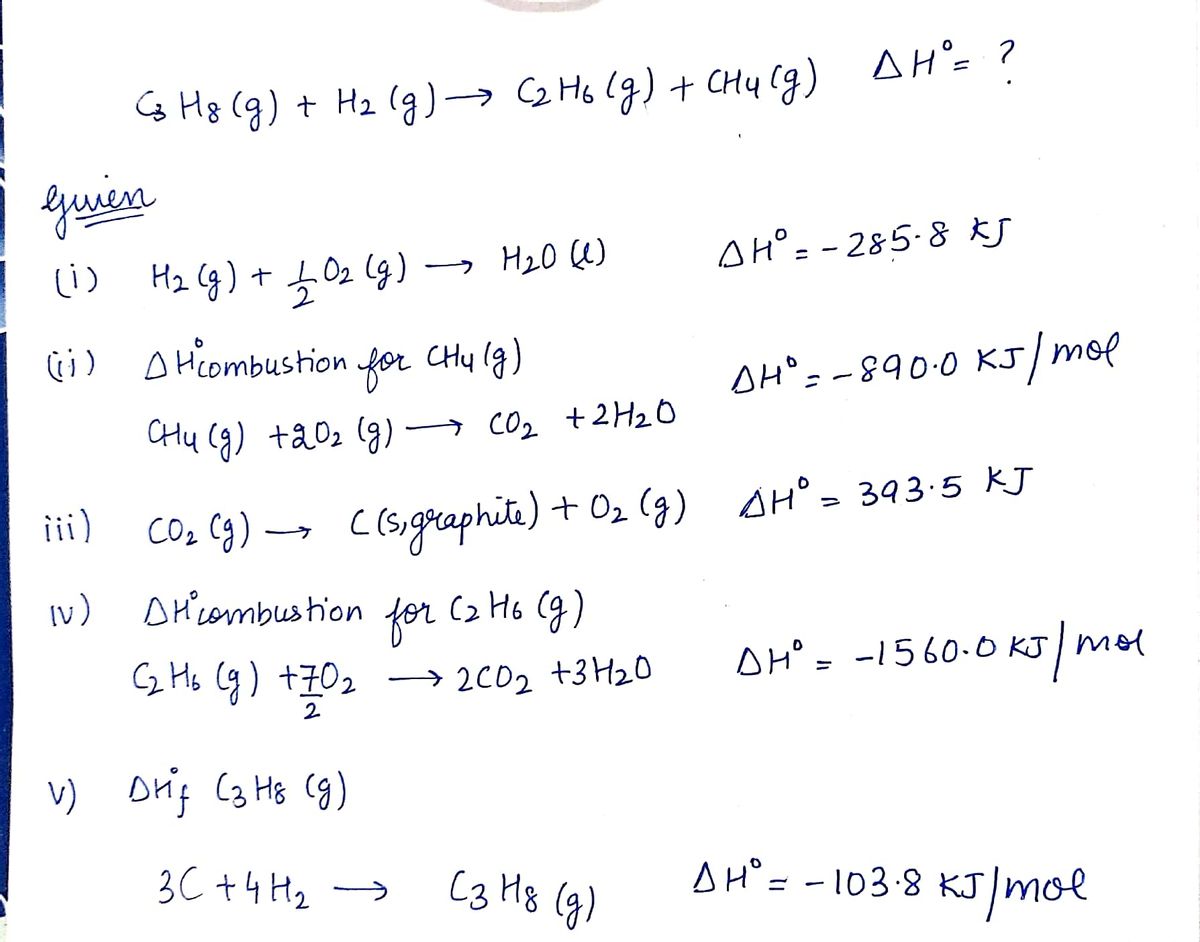 C3 H8 (g) + H2 (g) → C2 H6 (g) + CH4 (g) ΔH°= ?
Given
(i) H2 (g) + 1/2 O2 (g) → H2O (l) ΔH° = - 285.8 KJ
(ii) ΔH°combustion for CH4 (g)
ΔH° = - 890.0 KJ/mol
CH4 (g) + 2O2 (g) → CO2 + 2H2O
iii) CO2 (g) → C (s,graphite) + O2 (g) ΔH° = 393.5 KJ
iv) ΔH°combustion for C2 H6 (g)
C2 H6 (g) + 7/2 O2 → 2CO2 + 3H2O ΔH° = -1560.0 KJ/mol
v) ΔH°f C3 H8 (g)
3C + 4H2 → C3 H8 (g) ΔH° = - 103.8 KJ/mol